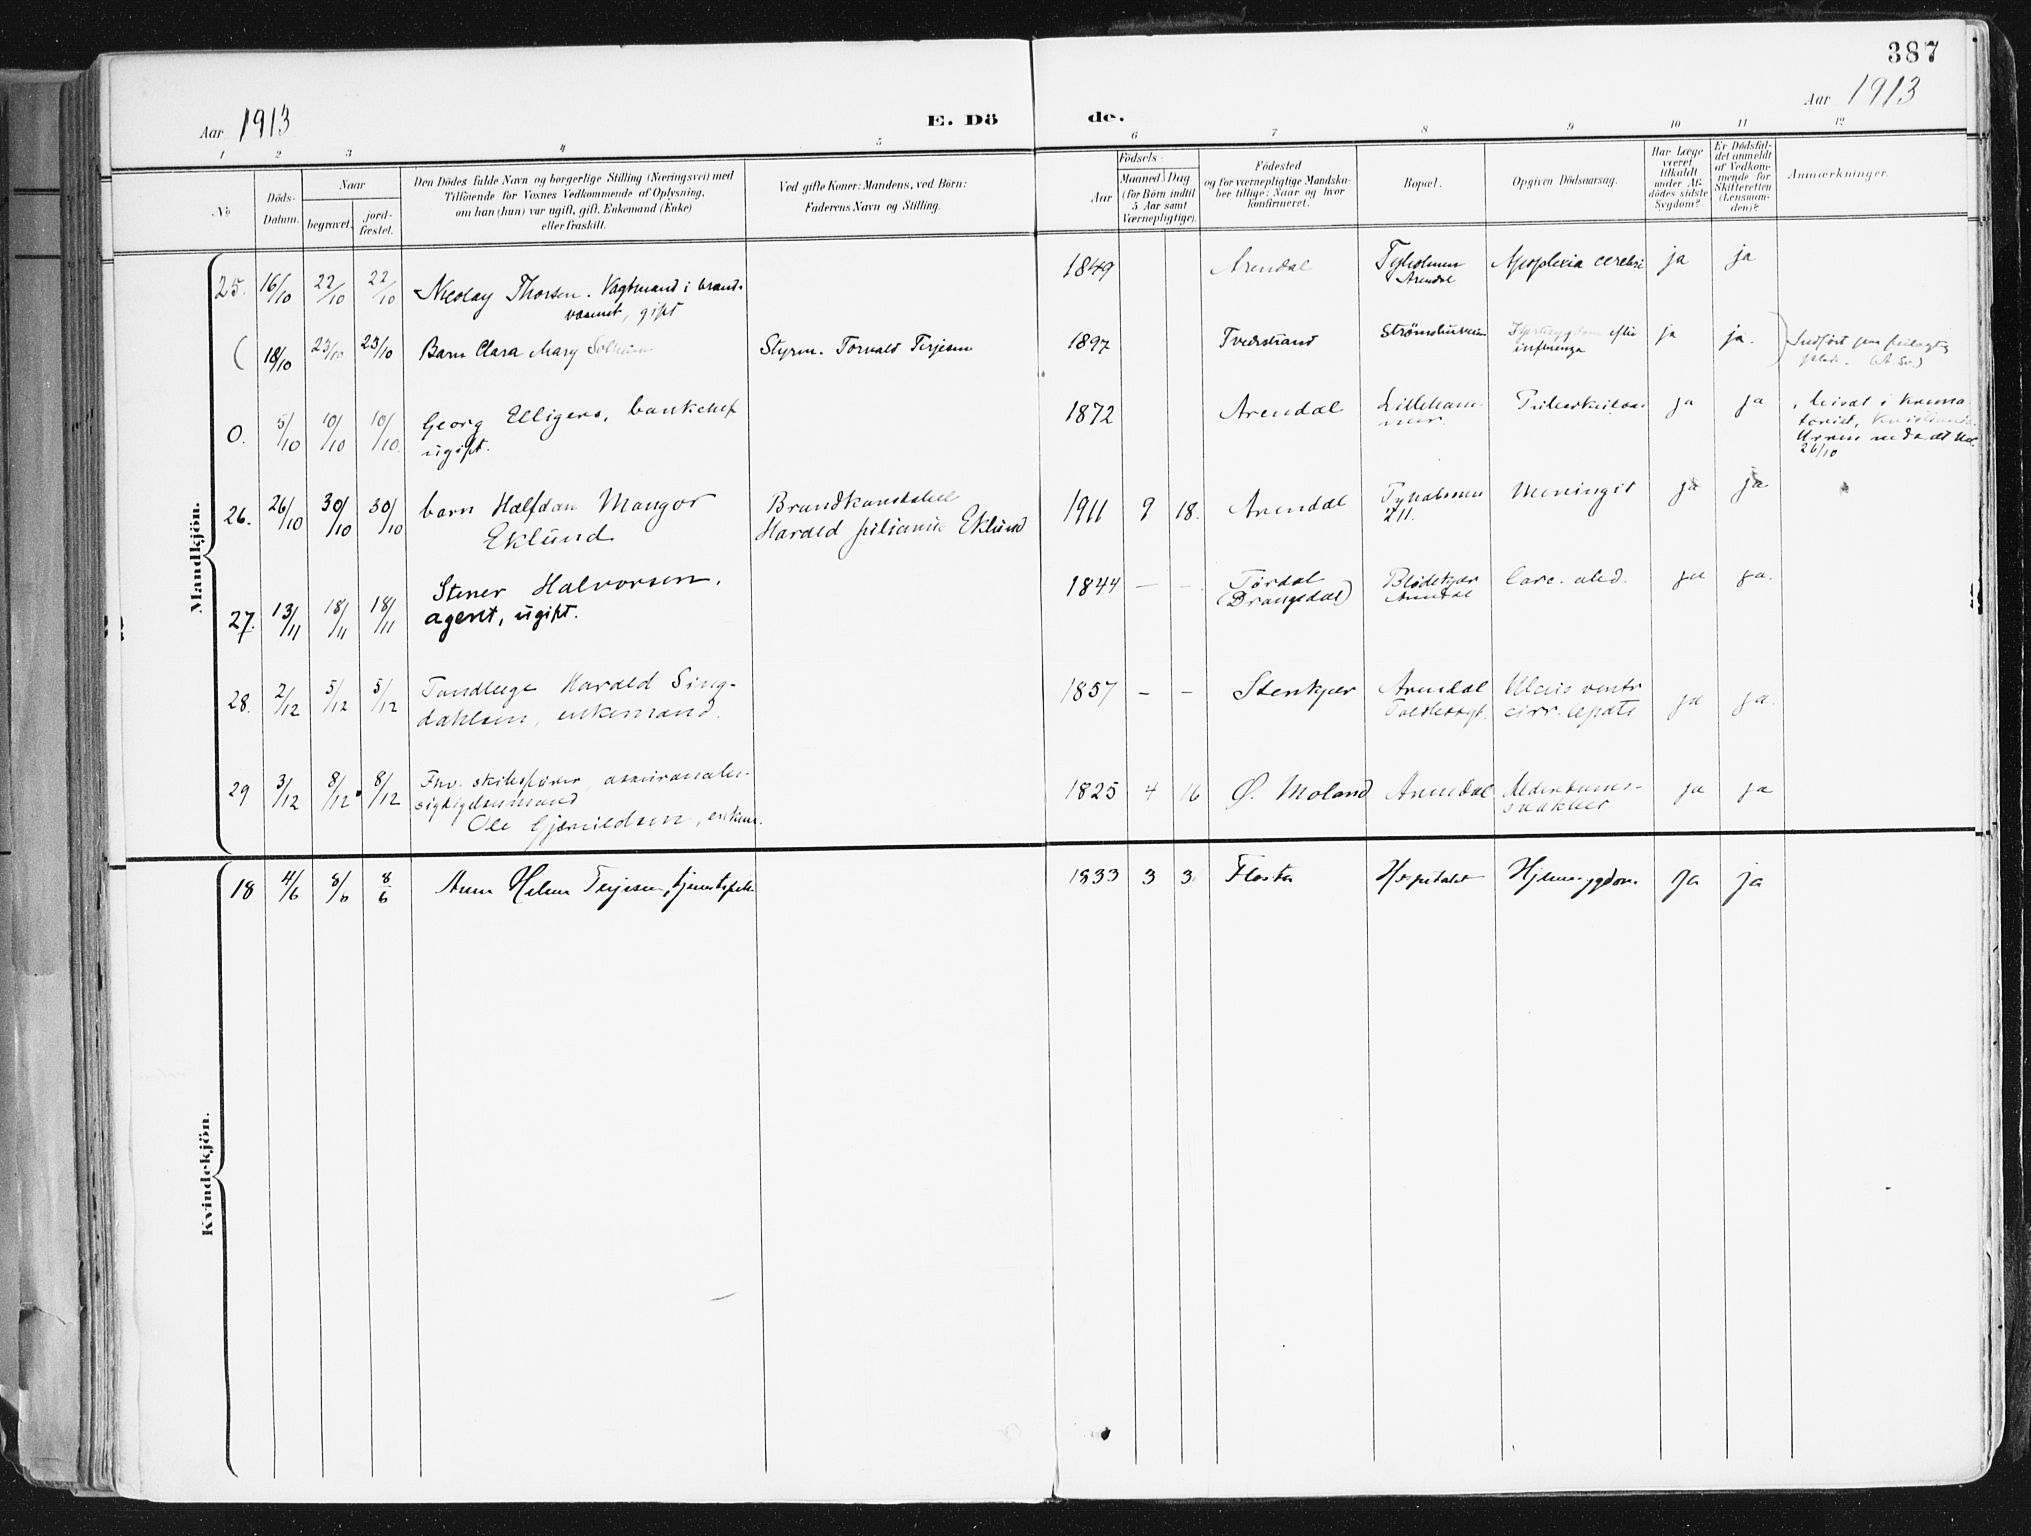 387
Aar 1913
E. Dö
de.
Aar 1913
1 2 3 4 5 6 7 8 9 10 11 12
№
Döds-
Datum.
Naar
begravet.
jord-
fæstet.
Den Dödes fulde Navn og borgerlige Stilling (Næringsvei) med
Tilföiende for Voxnes Vedkommende af Oplysning,
om han (hun) var ugift, gift, Enkemand (Enke)
eller fraskilt.
Ved gifte Koner: Mandens, ved Börn:
Faderens Navn og Stilling.
Födsels-
Aar
Maaned Dag
(for Börn indtil
5 Aar samt
Værnepligtige).
Födested
og for værnepligtige Mandska-
ber tillige: Naar og hvor
konfirmeret.
Bopæl.
Opgiven Dödsaarsag.
Har Læge
været
tilkaldt
under Af-
dödes sidste
Sygdom?
Er Dödsfal-
det anmeldt
af Vedkom-
mende for
Skifteretten
(Lensman-
den)?
Anmærkninger.
Mandkjön.
25. 16/10 22/10 22/10 Nicolay Thorsen. Vagtmand i brand-
væsenet, gift
1849 Arendal Tyholmen
Arendal
Apoplexia cerebri ja ja
( 18/10 23/10 23/10 Barn Clara Mary Solheim Styrm. Torvald Terjesen 1897 Tvedestrand Strømsbuveien Hjertesygdom efter
influenza
ja ja. ) Indført paa feilagtig
plads.
0. 5/10 10/10 10/10 Georg Elligers, bankchef
ugift.
1872 Arendal Lilleham-
mer.
Tuberkulose ja ja , bisat i krema-
toriet, Kristiania.
Urnen nedsat her
26/10
26. 26/10 30/10 30/10 barn Halfdan Mangor
Eklund
Brandkonstabel
Harald Julianus Eklund
1911 9 18. Arendal Tyholmen
211.
Meningit ja ja
27. 13/11 18/11 18/11 Stener Halvorsen,
agent, ugift.
1844 — — Tørdal
(Drangedal)
Blødekjær
Arendal
Carc. abd. ja ja.
28. 2/12 5/12 5/12 Tandlæge Harald Sing-
dahlsen, enkemand.
1857 - - Stenkjær Arendal
Ulcus ventr
cirr. hepatis
ja ja.
29 3/12 8/12 8/12 Fhv. skibsfører,
Ole Gjeruldsen, enkem.
1825 4 16 Ø. Moland Arendal Alderdoms-
svakhet
ja ja
Kvindekjön.
18 4/6 8/6 8/6 Anna Helene Terjesen, tjenestepike 1833 3 3. Flosta Hospitalet Hjernesygdom ja ja